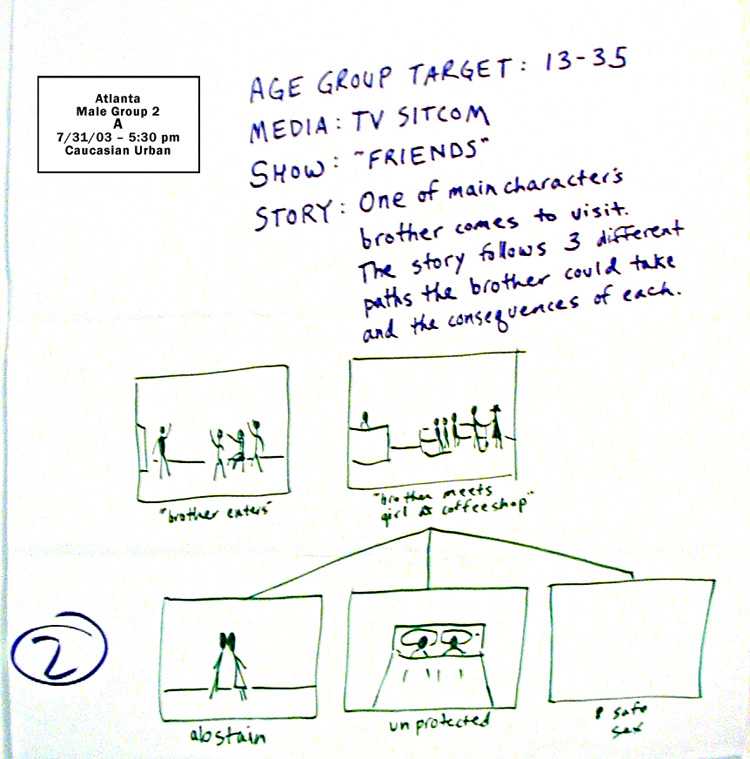 Atlanta
Male Group 2
A
7/31/03 – 5:30 pm
Caucasian Urban
AGE GROUP TARGET: 13-35
MEDIA: TV SITCOM
SHOW: "FRIENDS"
STORY: One of main character's
brother comes to visit.
The story follows 3 different
paths the brother could take
and the consequences of each.
"brother enters"
"brother meets
girl @ coffeeshop"
2
abstain
unprotected
safe
sex